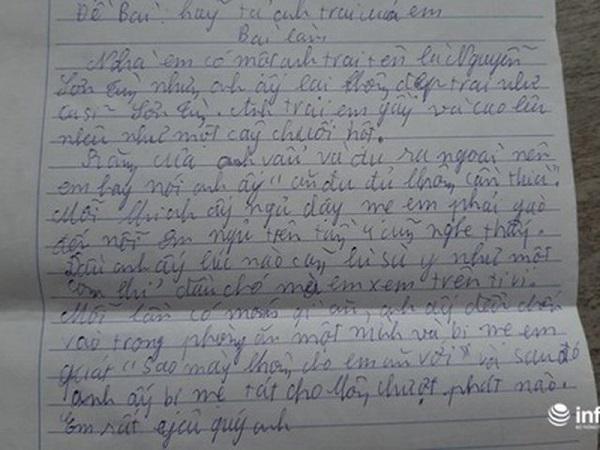 Đề Bài: hãy tả anh trai của em
Bài làm
Nhà em có một anh trai tên là Nguyễn
Sơn Tùng nhưng anh ấy lại không đẹp trai như
ca sĩ Sơn Tùng. Anh trai em gầy và cao lêu
nhêu như một cây chuối hột.
Răng của anh vẩu và đu ra ngoài nên
em hay nói anh ấy "ăn đu đủ không cần thìa".
Mỗi khi anh ấy ngủ dậy mẹ em phải gào
đến nỗi em ngủ trên tầng 4 cũng nghe thấy.
Đầu anh ấy lúc nào cũng lù xù y như một
đầu chó mà em xem trên ti vi.
Mỗi lần có món gì ăn, anh ấy đều
vào trong phòng ăn một mình và bị mẹ em
quát "Sao mày không cho em ăn với" và sau đó
anh ấy bị mẹ tát cho không trượt phát nào.
Em rất quý anh
info